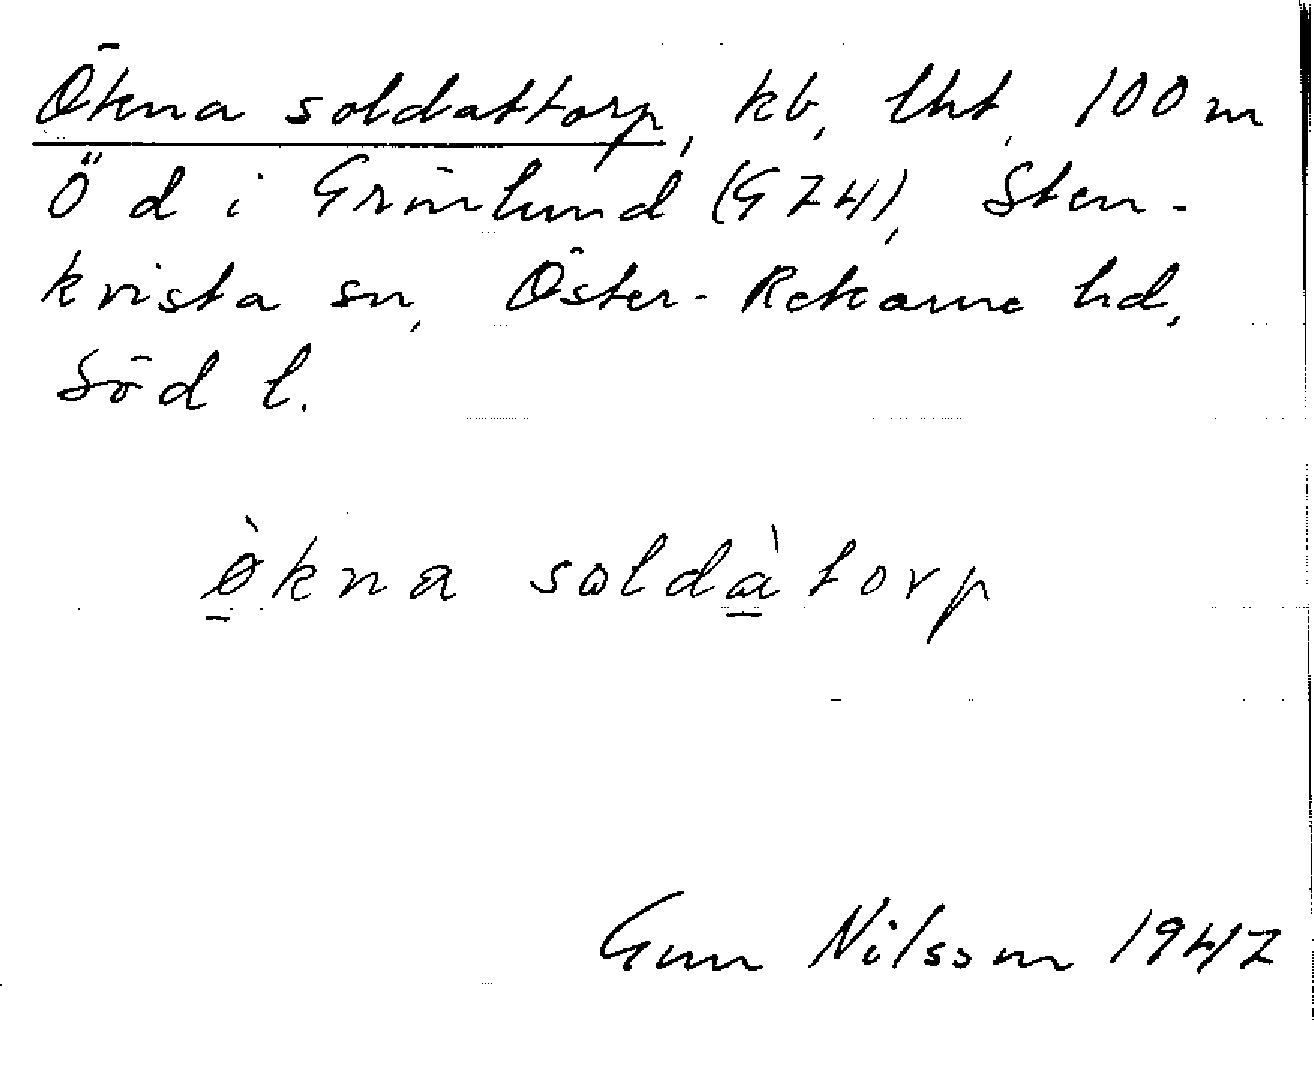 Ökna soldattorp, kb, lht, 100 m
Ö d i Grönlund (G 74), Sten-
kvista sn, Öster-Rekarne hd,
Söd l.
ø̀kna soldàtorp
Gun Nilsson 1947